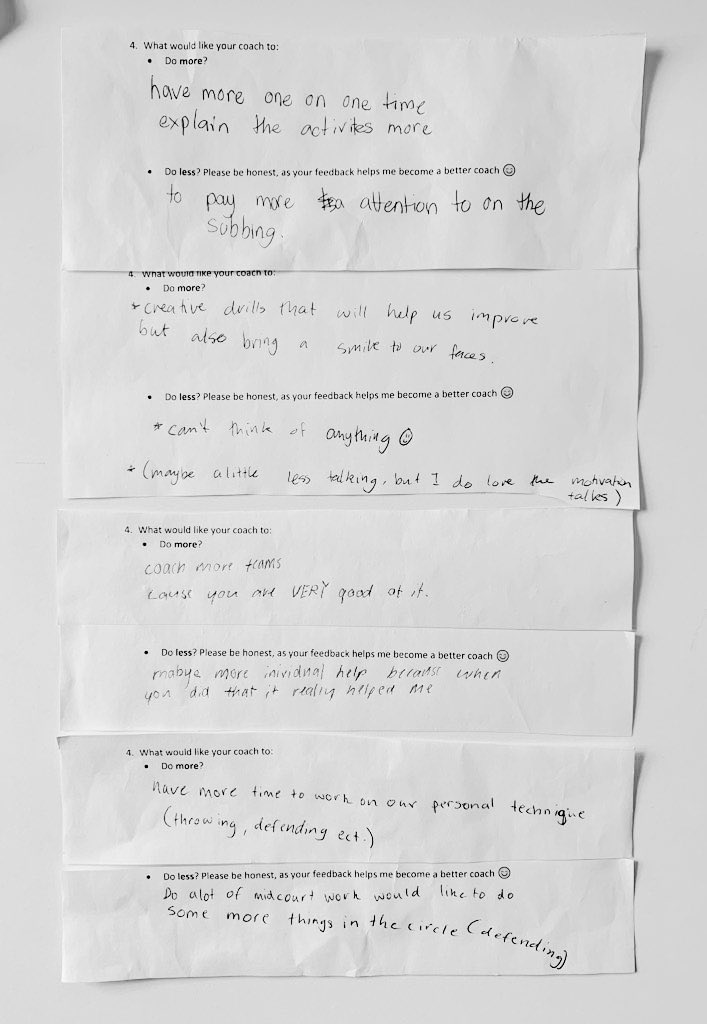 4. What would like your coach to:
• Do more?
have more one on one time
explain the activites more
• Do less? Please be honest, as your feedback helps me become a better coach ☺
to pay more attention to on the
subbing.
4. What would like your coach to:
• Do more?
* creative drills that will help us improve
but also bring a smile to our faces.
• Do less? Please be honest, as your feedback helps me become a better coach ☺
* can't think of anything ☺
* (maybe a little less talking, but I do love the motivation
talks)
4. What would like your coach to:
• Do more?
coach more teams
cause you are VERY good at it.
• Do less? Please be honest, as your feedback helps me become a better coach ☺
mabye more inividual help because when
you did that it really helped me
4. What would like your coach to:
• Do more?
have more time to work on our personal technique
(throwing, defending ect.)
• Do less? Please be honest, as your feedback helps me become a better coach ☺
Do alot of midcourt work would like to do
some more things in the circle (defending)